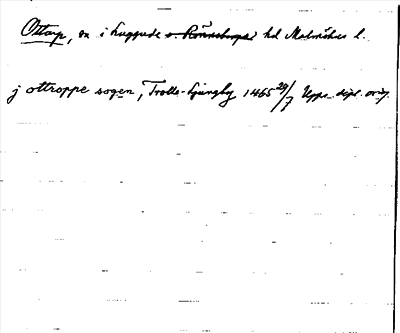 Ottarp, sn i Luggude o. Rönnebergs hd Malmöhus l.
j ottroppe sogen, Trolle-Ljungby 1465 29/7 Upps. dipl. orig.